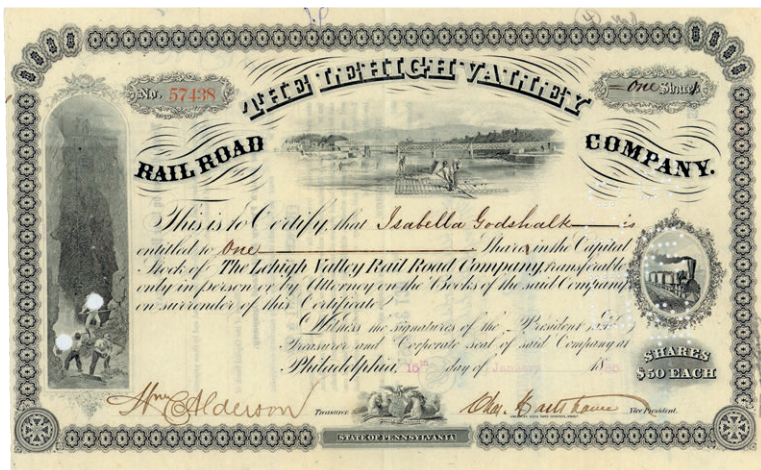 No. 57438
THE LEHIGH VALLEY
One Share
RAIL ROAD COMPANY.
This is to Certify, that Isabella Godshalk is
entitled to One Shares in the Capital
Stock of The Lehigh Valley Rail Road Company, transferable
only in person or by Attorney on the Books of the said Company
on surrender of this Certificate.
Witness the signatures of the President and
Treasurer and Corporate seal of said Company at
Philadelphia, 15th day of January 18
SHARES
$50 EACH
Wm C Alderson Treasurer. Chas. Hartshorne Vice President.
STATE OF PENNSYLVANIA